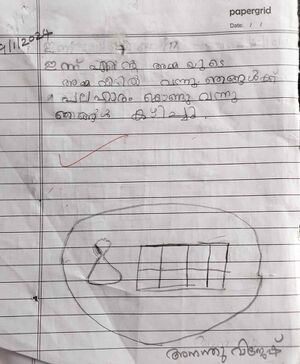 papergrid
Date: / /
9/1/2024
ഇന്ന് എന്റെ അമ്മയുടെ
അമ്മ വീട്ടിൽ വന്നു ഞങ്ങൾക്ക്
പലഹാരം കൊണ്ടു വന്നു
ഞങ്ങൾ കഴിച്ചു.
അനന്തു വിജേഷ്